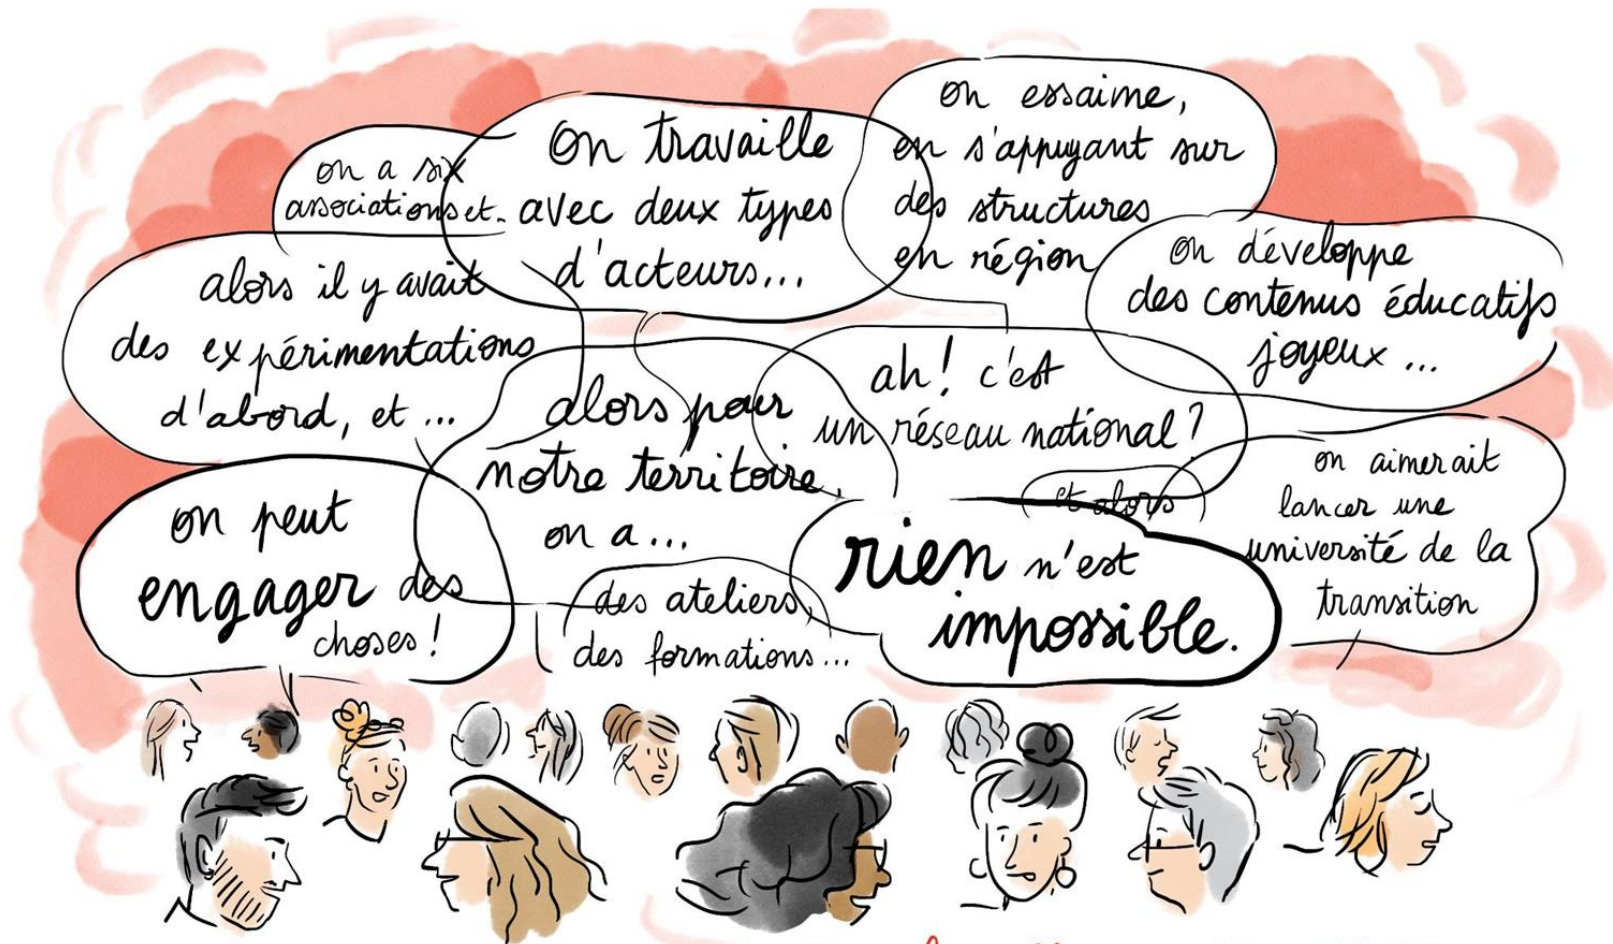 on a six
associations et.
on travaille
avec deux types
d'acteurs...
on essaime,
en s'appuyant sur
des structures
en région
alors il y avait
des expérimentations
d'abord, et ...
on développe
des contenus éducatifs
joyeux ...
alors pour
notre territoire,
on a ...
ah! c'est
un réseau national?
et alors
on aimerait
lancer une
université de la
transition
on peut
engager des
choses!
des ateliers,
des formations...
rien n'est
impossible.